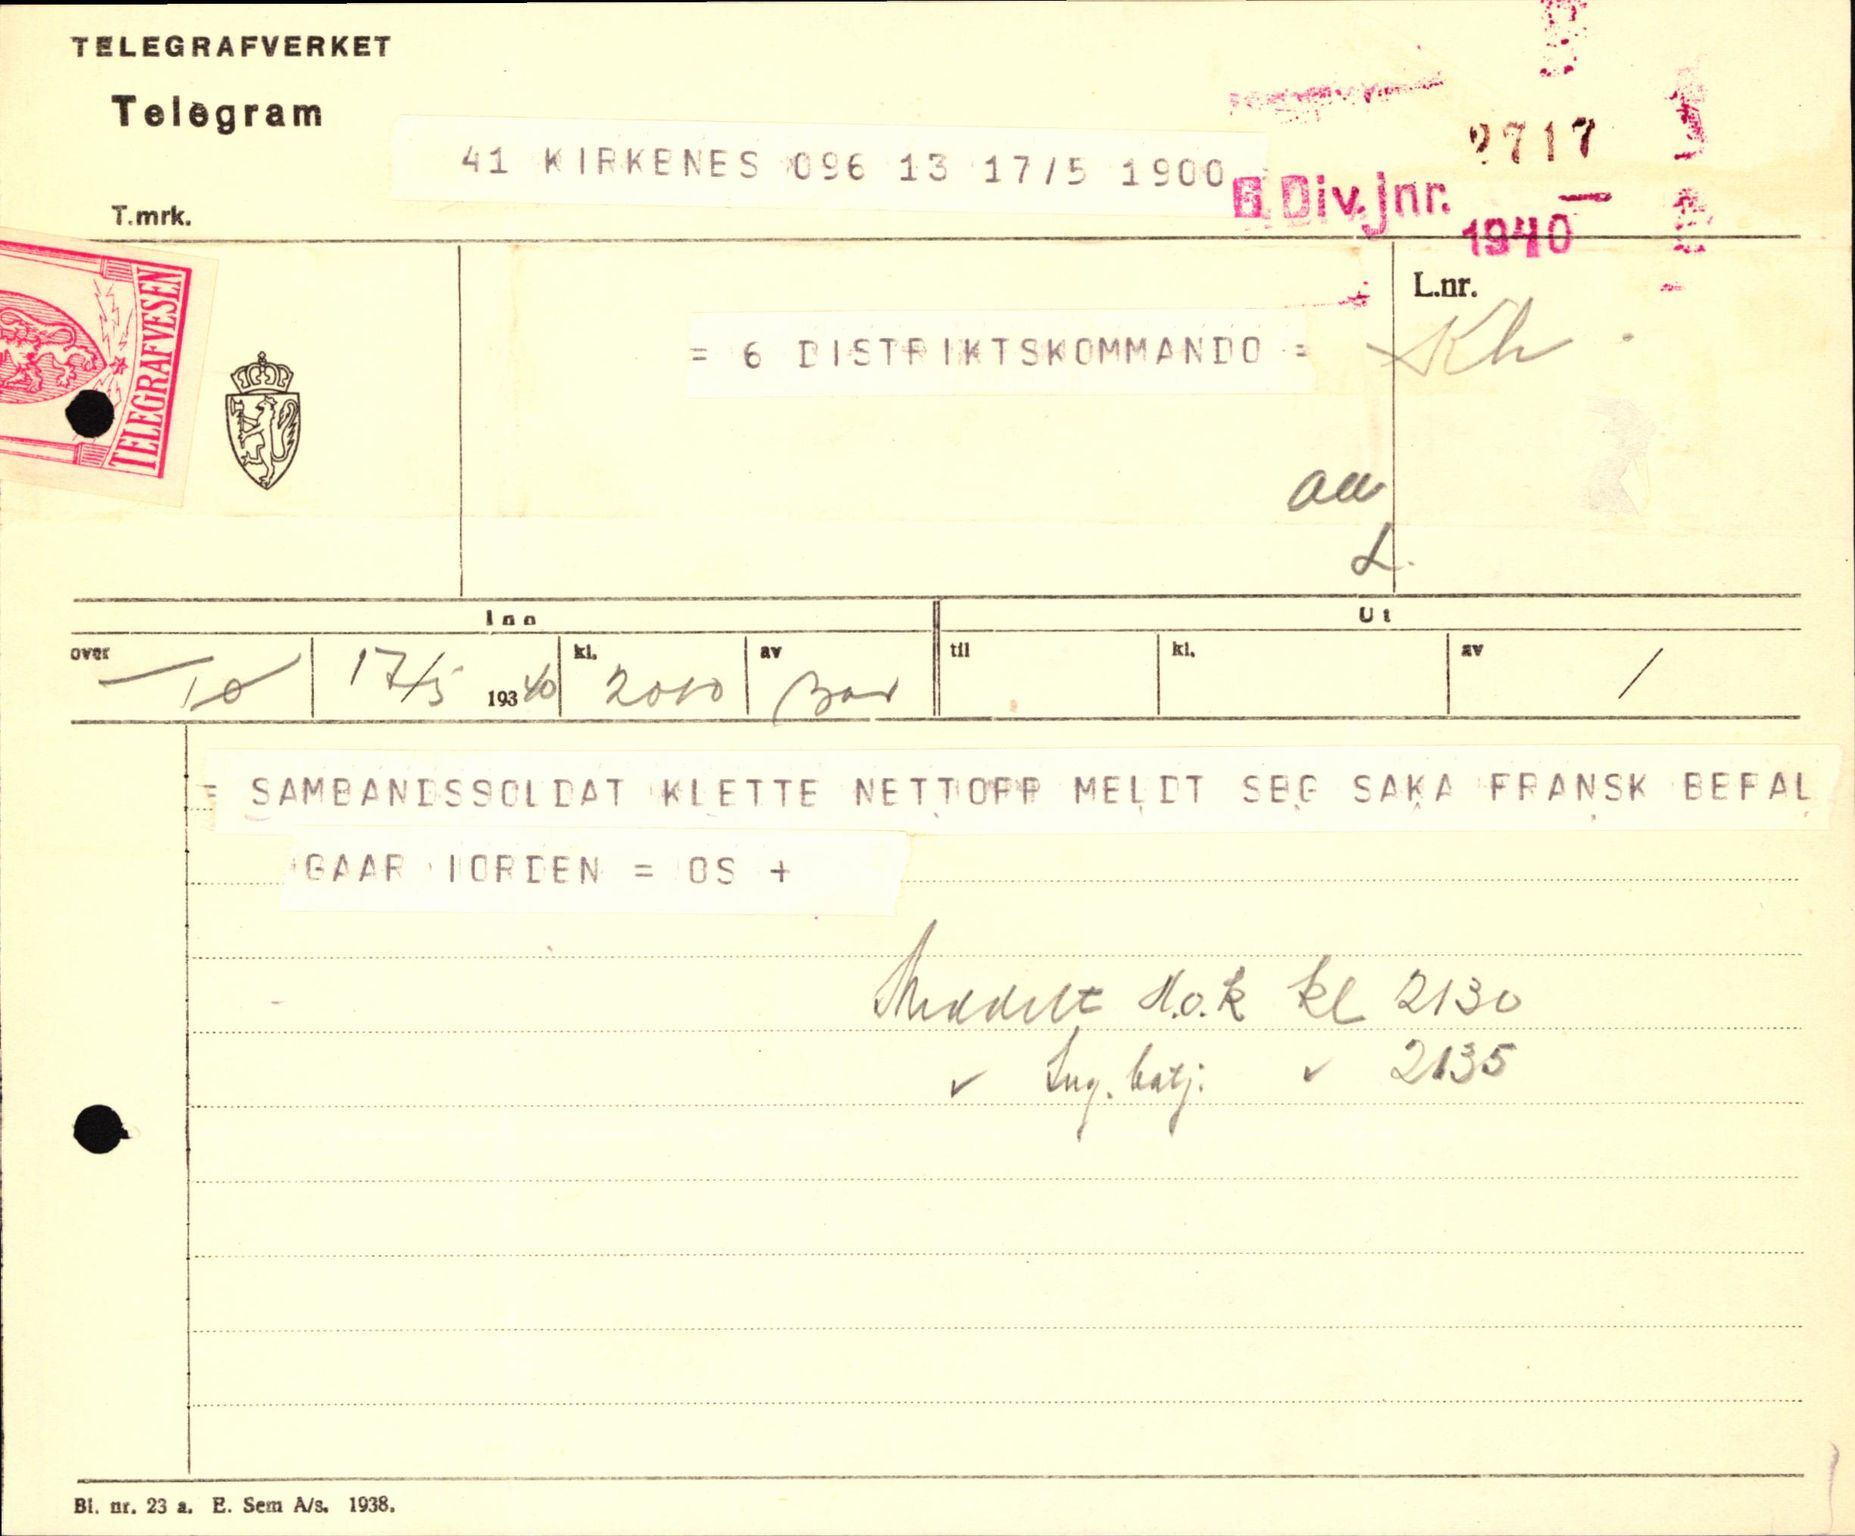 TELEGRAFVERKET
Telegram
41 KIRKENES 096 13 17/5 1900
2717
6. Div. jnr. 1940
T.mrk.
TELEGRAFVESEN
L.nr.
= 6 DISTRIKTSKOMMANDO =
Kh
L.
Inn Ut
over 10 17/5 193 40 kl. 2010 av til kl. av /
= SAMBANDSSOLDAT KLETTE NETTOPP MELDT SEG SAKA FRANSK BEFAL
GAAR IORDEN = OS +
Meddelt H.o.k kl 2130
" Ing. batj: " 2135
Bl. nr. 23 a. E. Sem A/s. 1938.